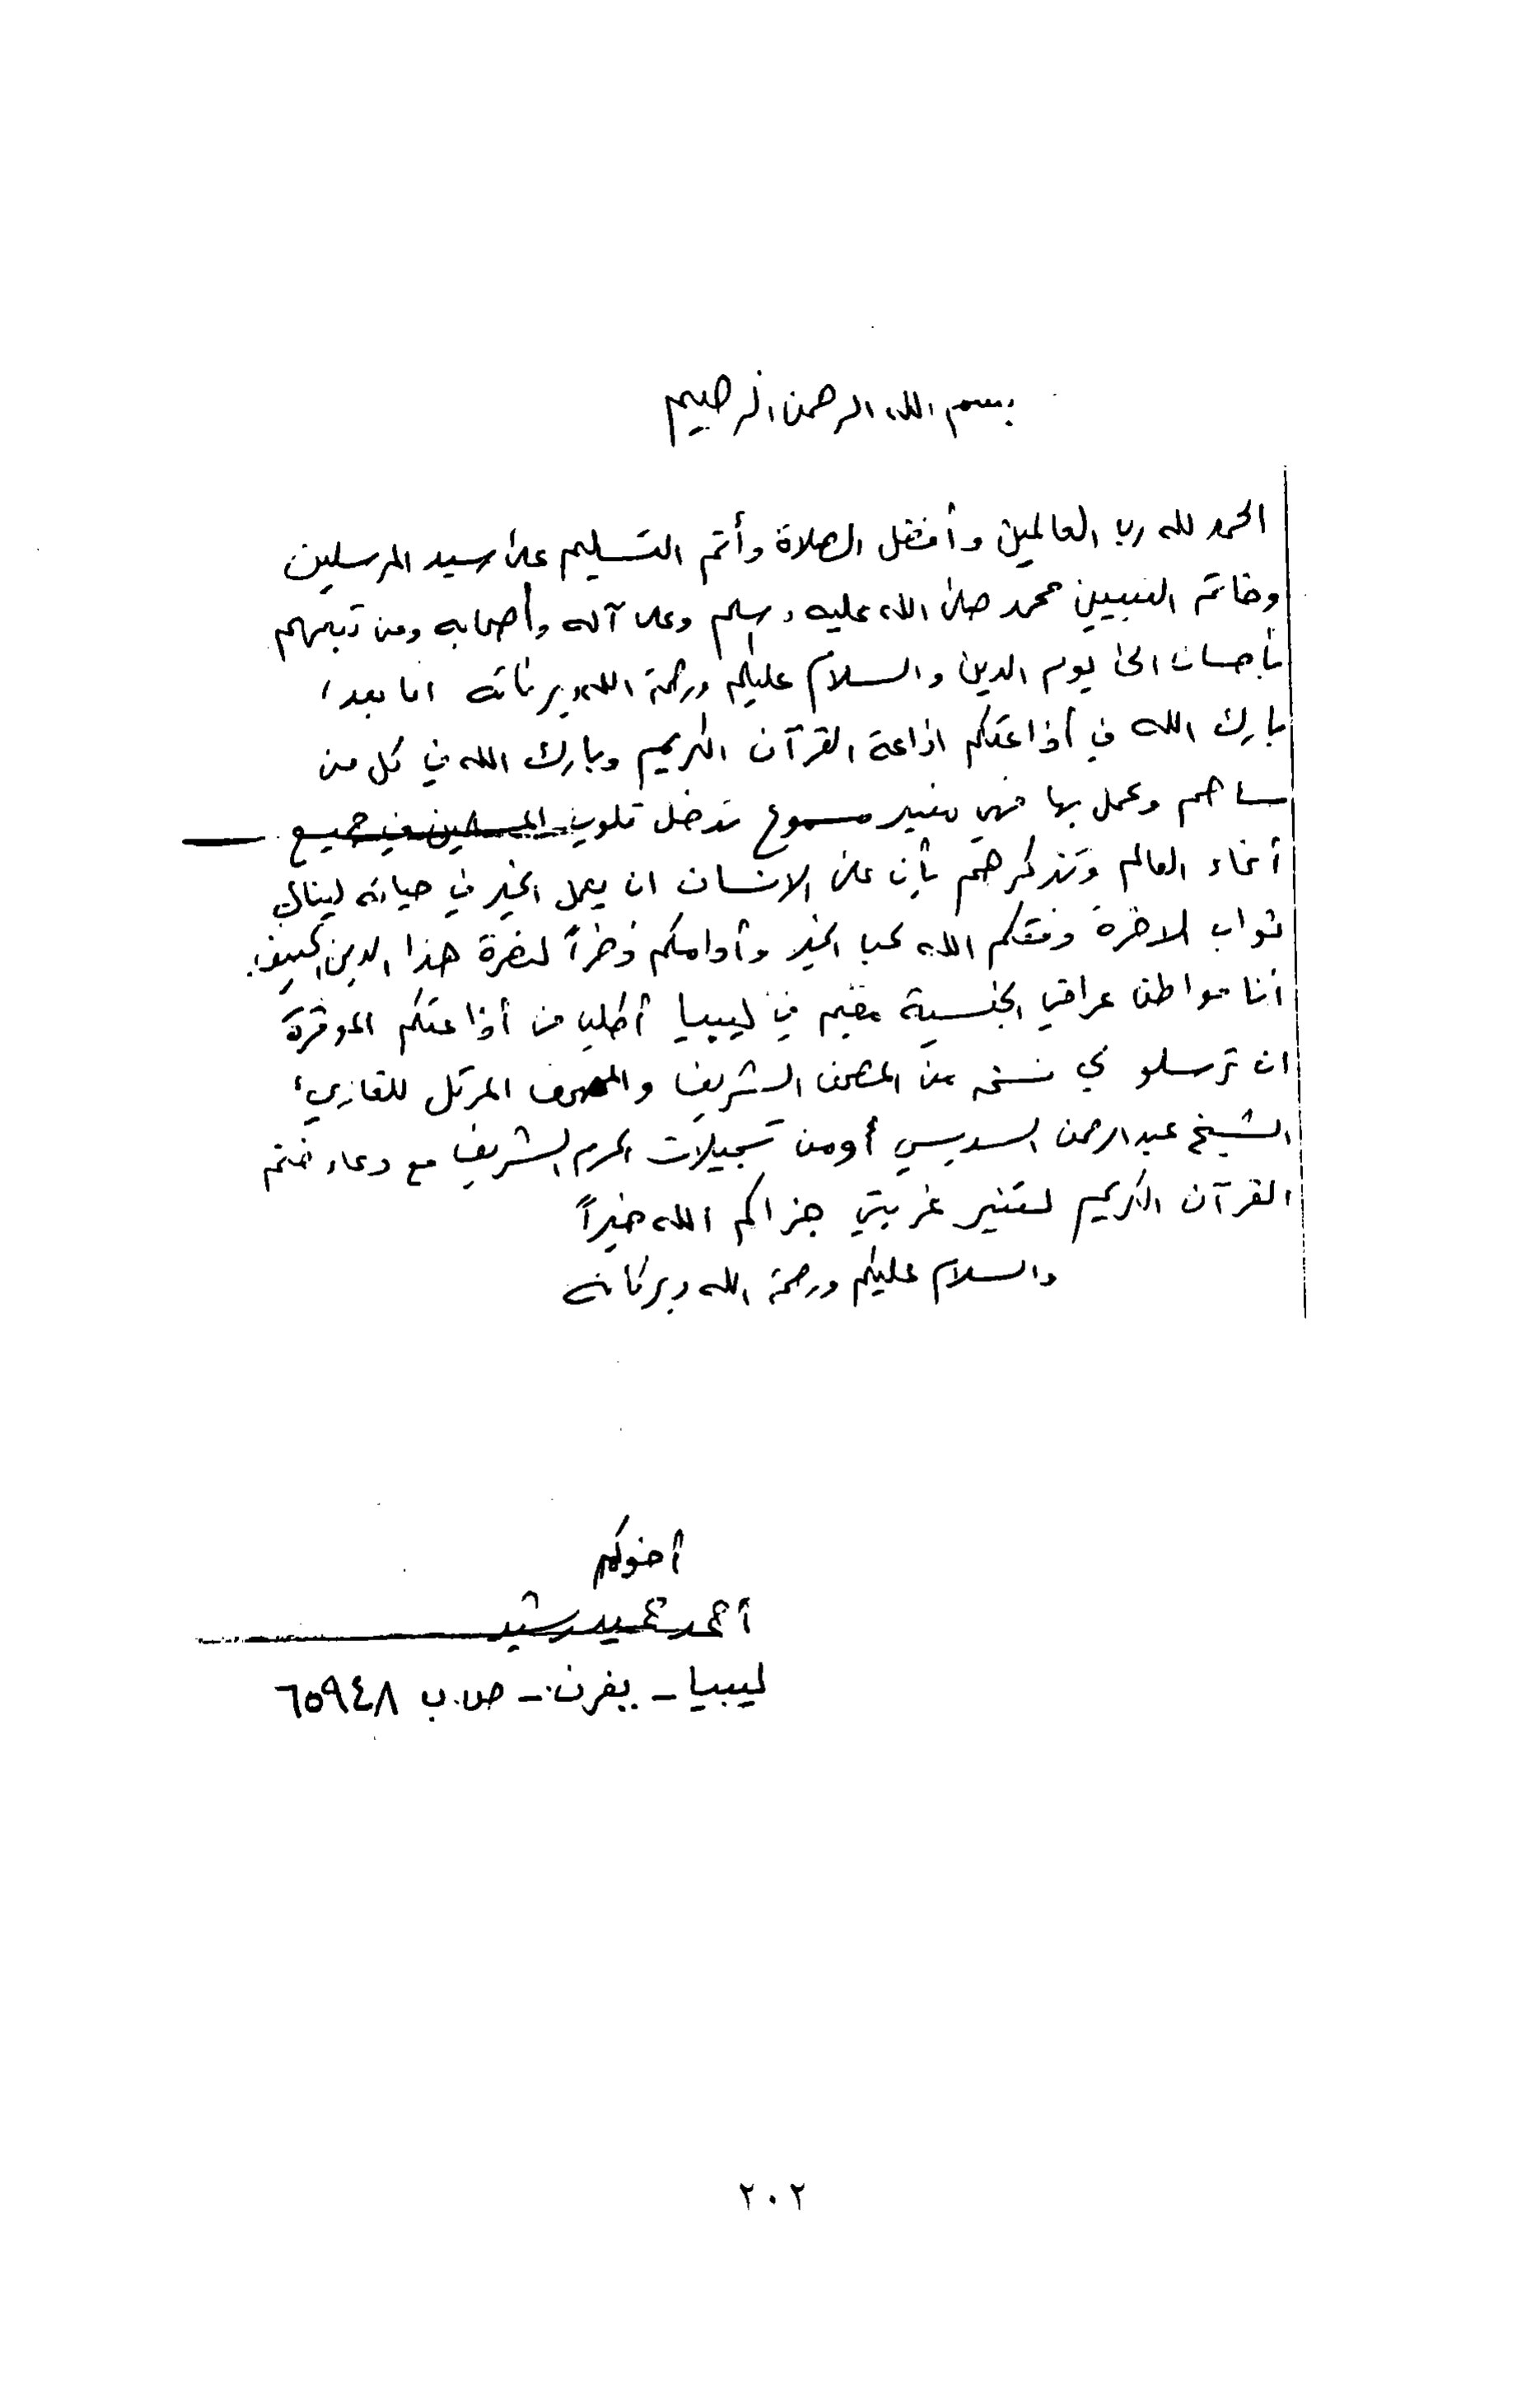 بسم الله الرحمن الرحيم
الحمد لله رب العالمين وأفضل الصلاة وأتم التسليم على سيد المرسلين
وخاتم النبيين محمد صلى الله عليه وسلم وعلى آله وأصحابه ومن تبعهم
بأحسان الى يوم الدين والسلام عليكم ورحمة الله وبركاته اما بعد،
بارك الله في أذاعتكم اذاعة القرآن الكريم وبارك الله في كل من
ساهم وعمل بها فهي منبر مسموع تدخل قلوب المسلمين في جميع
أنحاء العالم وتذكرهم بأن على الانسان ان يعمل الخير في حياته لينال
ثواب الاخرة وفقكم الله لحب الخير وأدامكم ذخراً لنصرة هذا الدين الحنيف.
أنا مواطن عراقي الجنسية مقيم في ليبيا أطلب من أذاعتكم الموقرة
ان ترسلو لي نسخه من المصحف الشريف والمصحف المرتل للقارىء
الشيخ عبدالرحمن السديسي أو من تسجيلات الحرم الشريف مع دعاء ختم
القرآن الكريم لتنير غربتي جزاكم الله خيراً
والسلام عليكم ورحمة الله وبركاته
أخوكم
أحمد حميد رشيد
ليبيا - يفرن - ص.ب ٦٥٩٤٨
٢٠٢